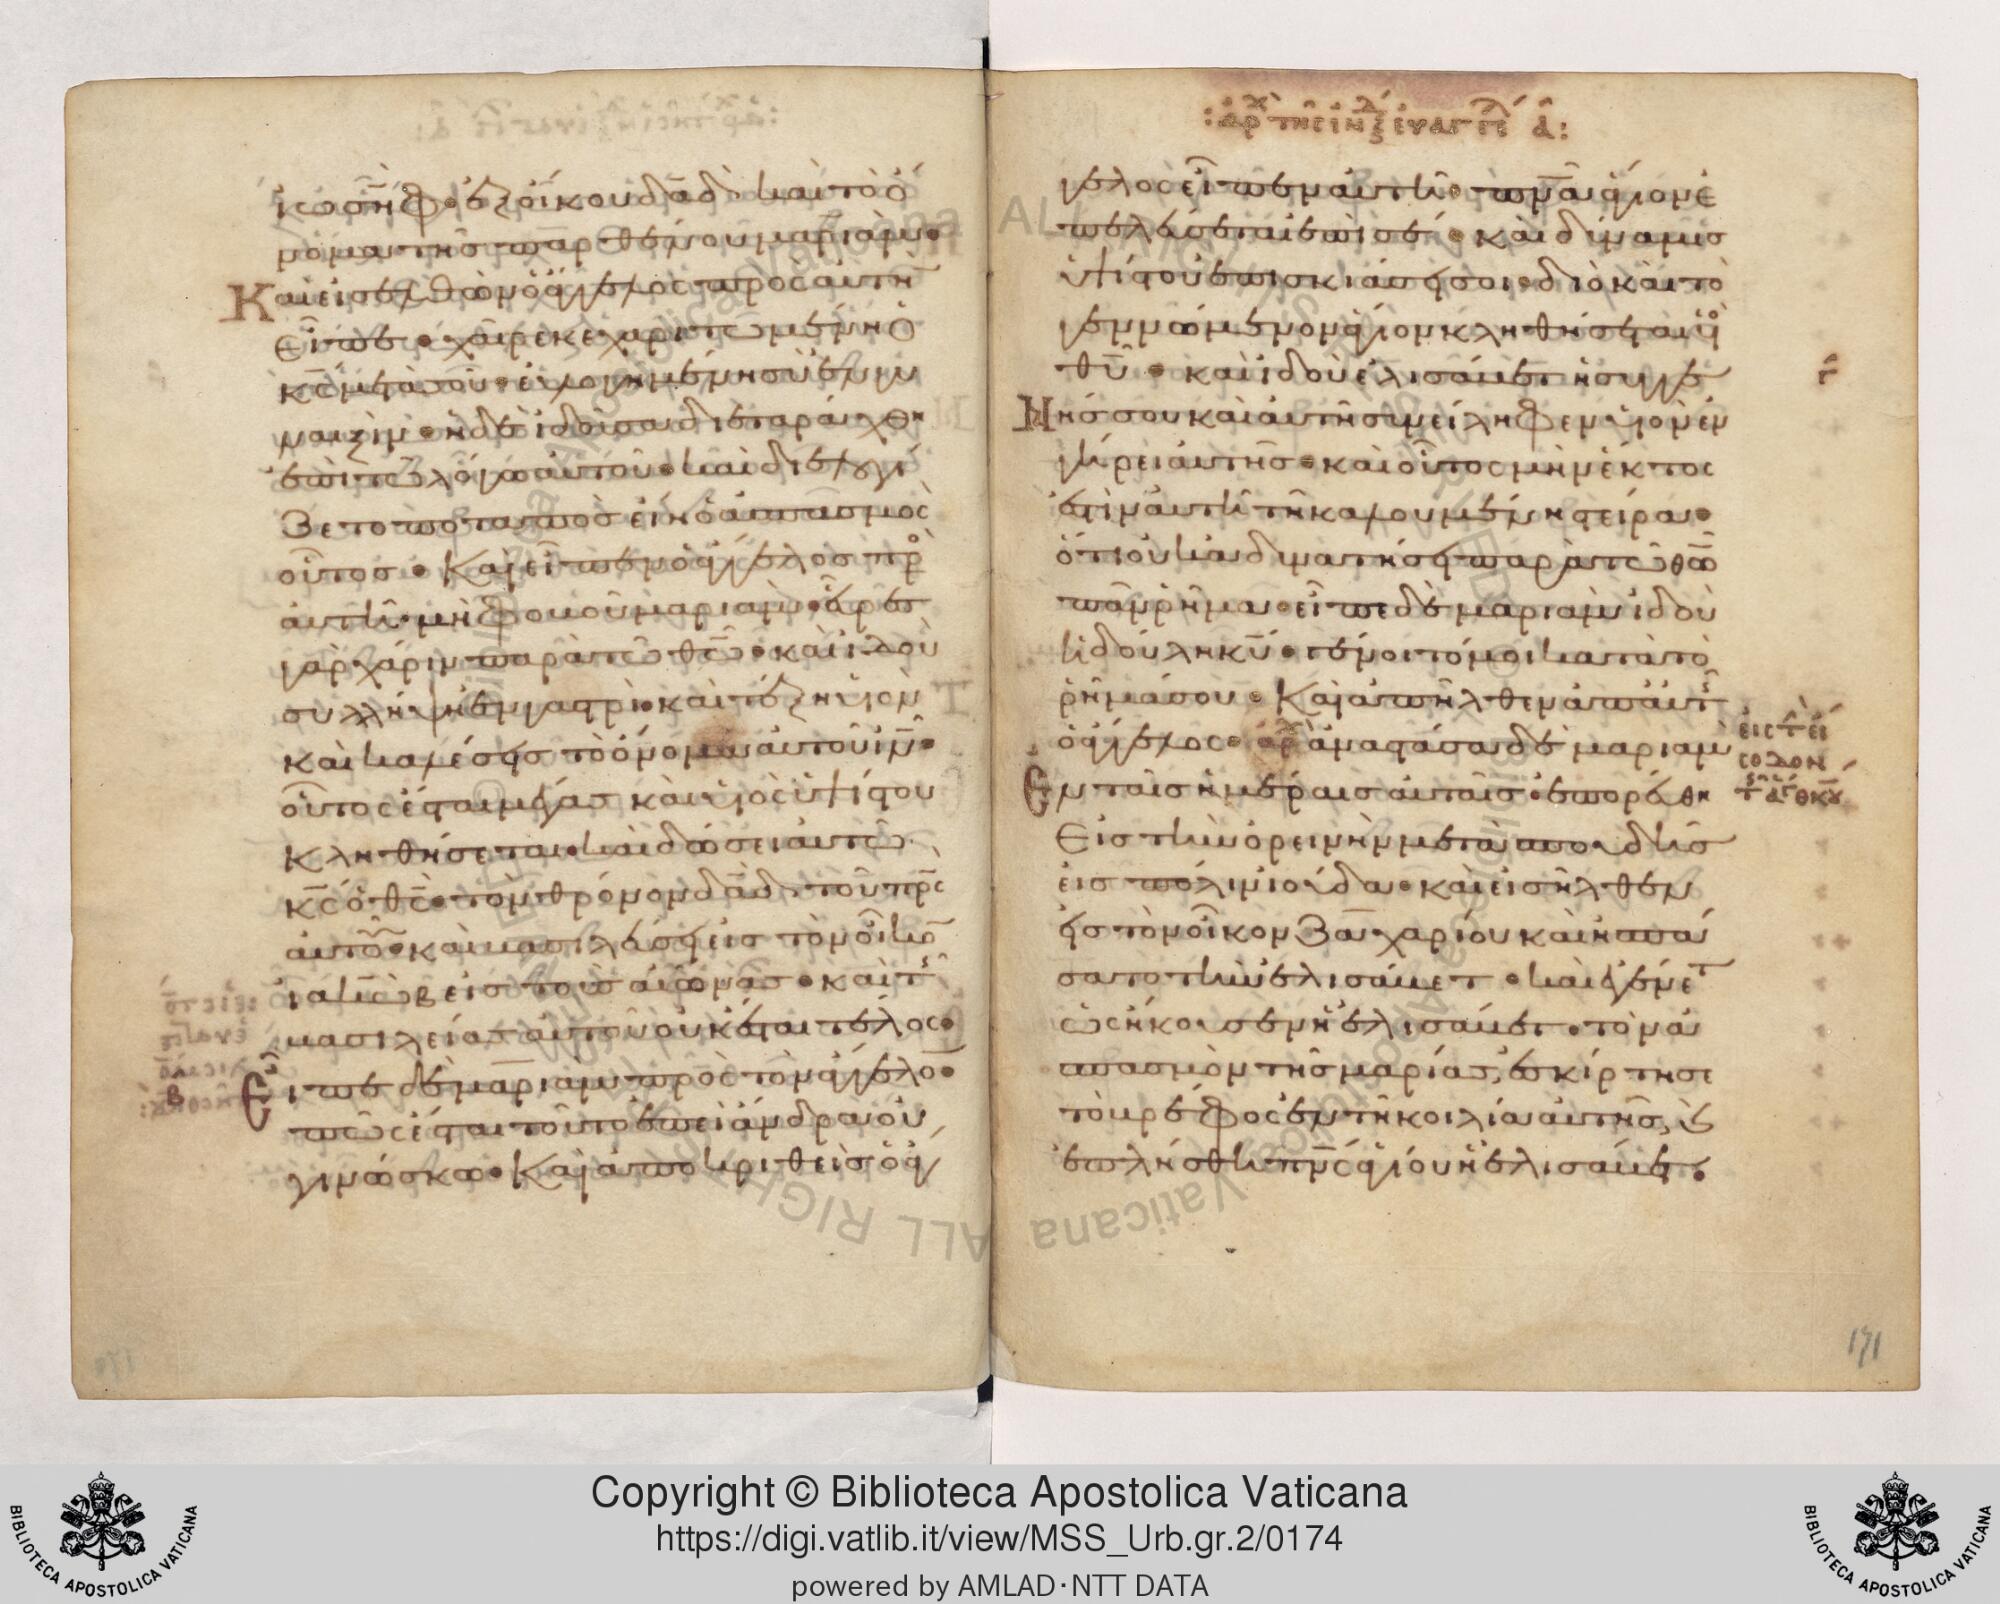 ἰωσὴφ· ἐξ οἴκου δαδ· καὶ τὸ ὄ
νομα τῆς παρθένου μαριάμ·
Καὶ εἰσελθὼν ὁ ἄγγελος πρὸς αὐτὴν
εἶπε· χαῖρε κεχαριτωμένη ὁ
κς μετὰ σοῦ· εὐλογημένη σὺ ἐν γυ
ναιξίν· ἡ δὲ ἰδοῦσα διεταράχθη
ἐπὶ τῶ λόγω αὐτοῦ· καὶ διελογί
ζετο ποταπὸς εἴη ὁ ἀσπασμὸς
οὗτος· Καὶ εἶπεν ὁ ἄγγελος πρ
αὐτὴν· μὴ φοβοῦ μαριάμ· εὗρες
γὰρ χάριν παρὰ τῶ θῶ· καὶ ἰδοὺ
συλλήψη ἐν γαστρὶ· καὶ τέξη υἱὸν
καὶ καλέσεις τὸ ὄνομα αὐτοῦ ιν·
οὗτος ἔσται μέγας καὶ υἱὸς ὑψίστου
κληθήσεται· καὶ δώσει αὐτῶ
κς ὁ θς· τὸν θρόνον δαδ· τοῦ πρς
αὐτοῦ· καὶ βασιλεύσει εἰς τὸν οἶκον
ἰακὼβ εἰς τοὺς αἰῶνας· καὶ τῆς
βασιλείας αὐτοῦ οὐκ ἔσται τέλος·
Εἶπε δὲ μαριὰμ πρὸς τὸν ἄγγελον·
πῶς ἔσται τοῦτο ἐπεὶ ἄνδρα οὐ
γινώσκω· Καὶ ἀποκριθεὶς ὁ ἄγ
γελος εἶπεν αὐτῆ· πνα ἅγιον ἐ
πελεύσεται ἐπί σέ· καὶ δύναμις
ὑψίστου ἐπισκιάσει σοι· διὸ καὶ τὸ
γεννώμενον ἅγιον κληθήσεται υἱὸς
θυ· καὶ ἰδοὺ ἐλισάβετ ἡ συγγε
Νής σου καὶ αὐτὴ συνείληφεν υἱὸν ἐν
γήρει αὐτῆς· καὶ οὗτος μὴν ἕκτος
ἐστὶν αὐτῆ τῆ καλουμένη στείρα·
ὅτι οὐκ ἀδυνατήσει παρὰ τῶ θῶ
πᾶν ῥῆμα· εἶπε δὲ μαριάμ ἰδοὺ
ἡ δούλη κυ· γένοιτό μοι κατὰ τὸ
ῥῆμά σου· Καὶ ἀπῆλθεν ἀπ' αὐτῆς
ὁ ἄγγελος· ἀρχ ἀναστᾶσα δὲ μαριὰμ
Ἐν ταῖς ἡμέραις αὐταῖς· ἐπορεύθη
εἰς τὴν ὀρεινὴν μετὰ σπουδῆς
εἰς πόλιν ἰούδα· καὶ εἰσῆλθεν
εἰς τὸν οἶκον ζαχαρίου καὶ ἠσπά
σατο τὴν ἐλισάβετ· καὶ ἐγένετο
ὡς ἤκουσεν ἡ ἐλισάβετ· τὸν ἀ
σπασμὸν τῆς μαρίας, ἐσκίρτησε
τὸ βρέφος ἐν τῆ κοιλία αὐτῆς, καὶ
ἐπλήσθη πνς ἁγίου ἡ ἐλισάβετ·
εἰς τ εἴ
σοδον
τ θκου
171
Copyright © Biblioteca Apostolica Vaticana
https://digi.vatlib.it/view/MSS_Urb.gr.2/0174
powered by AMLAD·NTT DATA
BIBLIOTECA APOSTOLICA VATICANA
BIBLIOTECA APOSTOLICA VATICANA